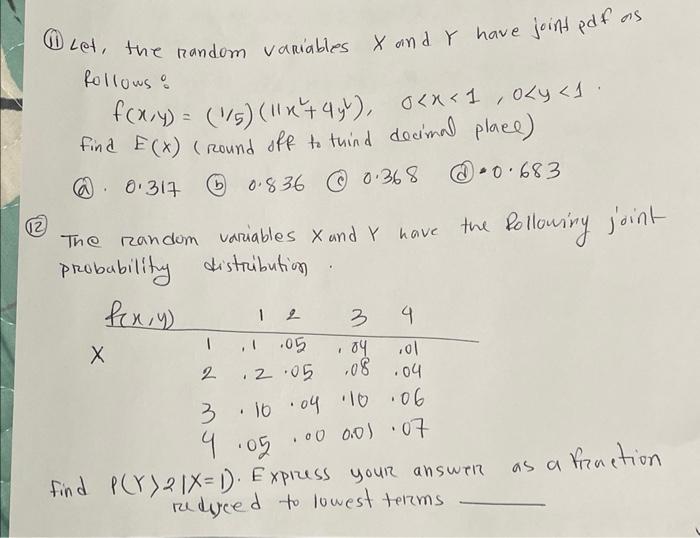 ⑪ Let, the random variables X and Y have joint pdf as
follows :
f(x,y) = (1/5)(11x²+4y²), 0<x<1, 0<y<1.
Find E(X) (round off to third decimal place)
ⓐ. 0.317 ⓑ 0.836 ⓒ 0.368 ⓓ 0.683
⑫ The random variables X and Y have the following joint
probability distribution.
f(x,y) 1 2 3 4
X 1 .1 .05 .04 .01
2 .2 .05 .08 .04
3 .10 .04 .10 .06
4 .05 .00 0.01 .07
Find P(Y>2|X=1). Express your answer as a fraction
reduced to lowest terms ______